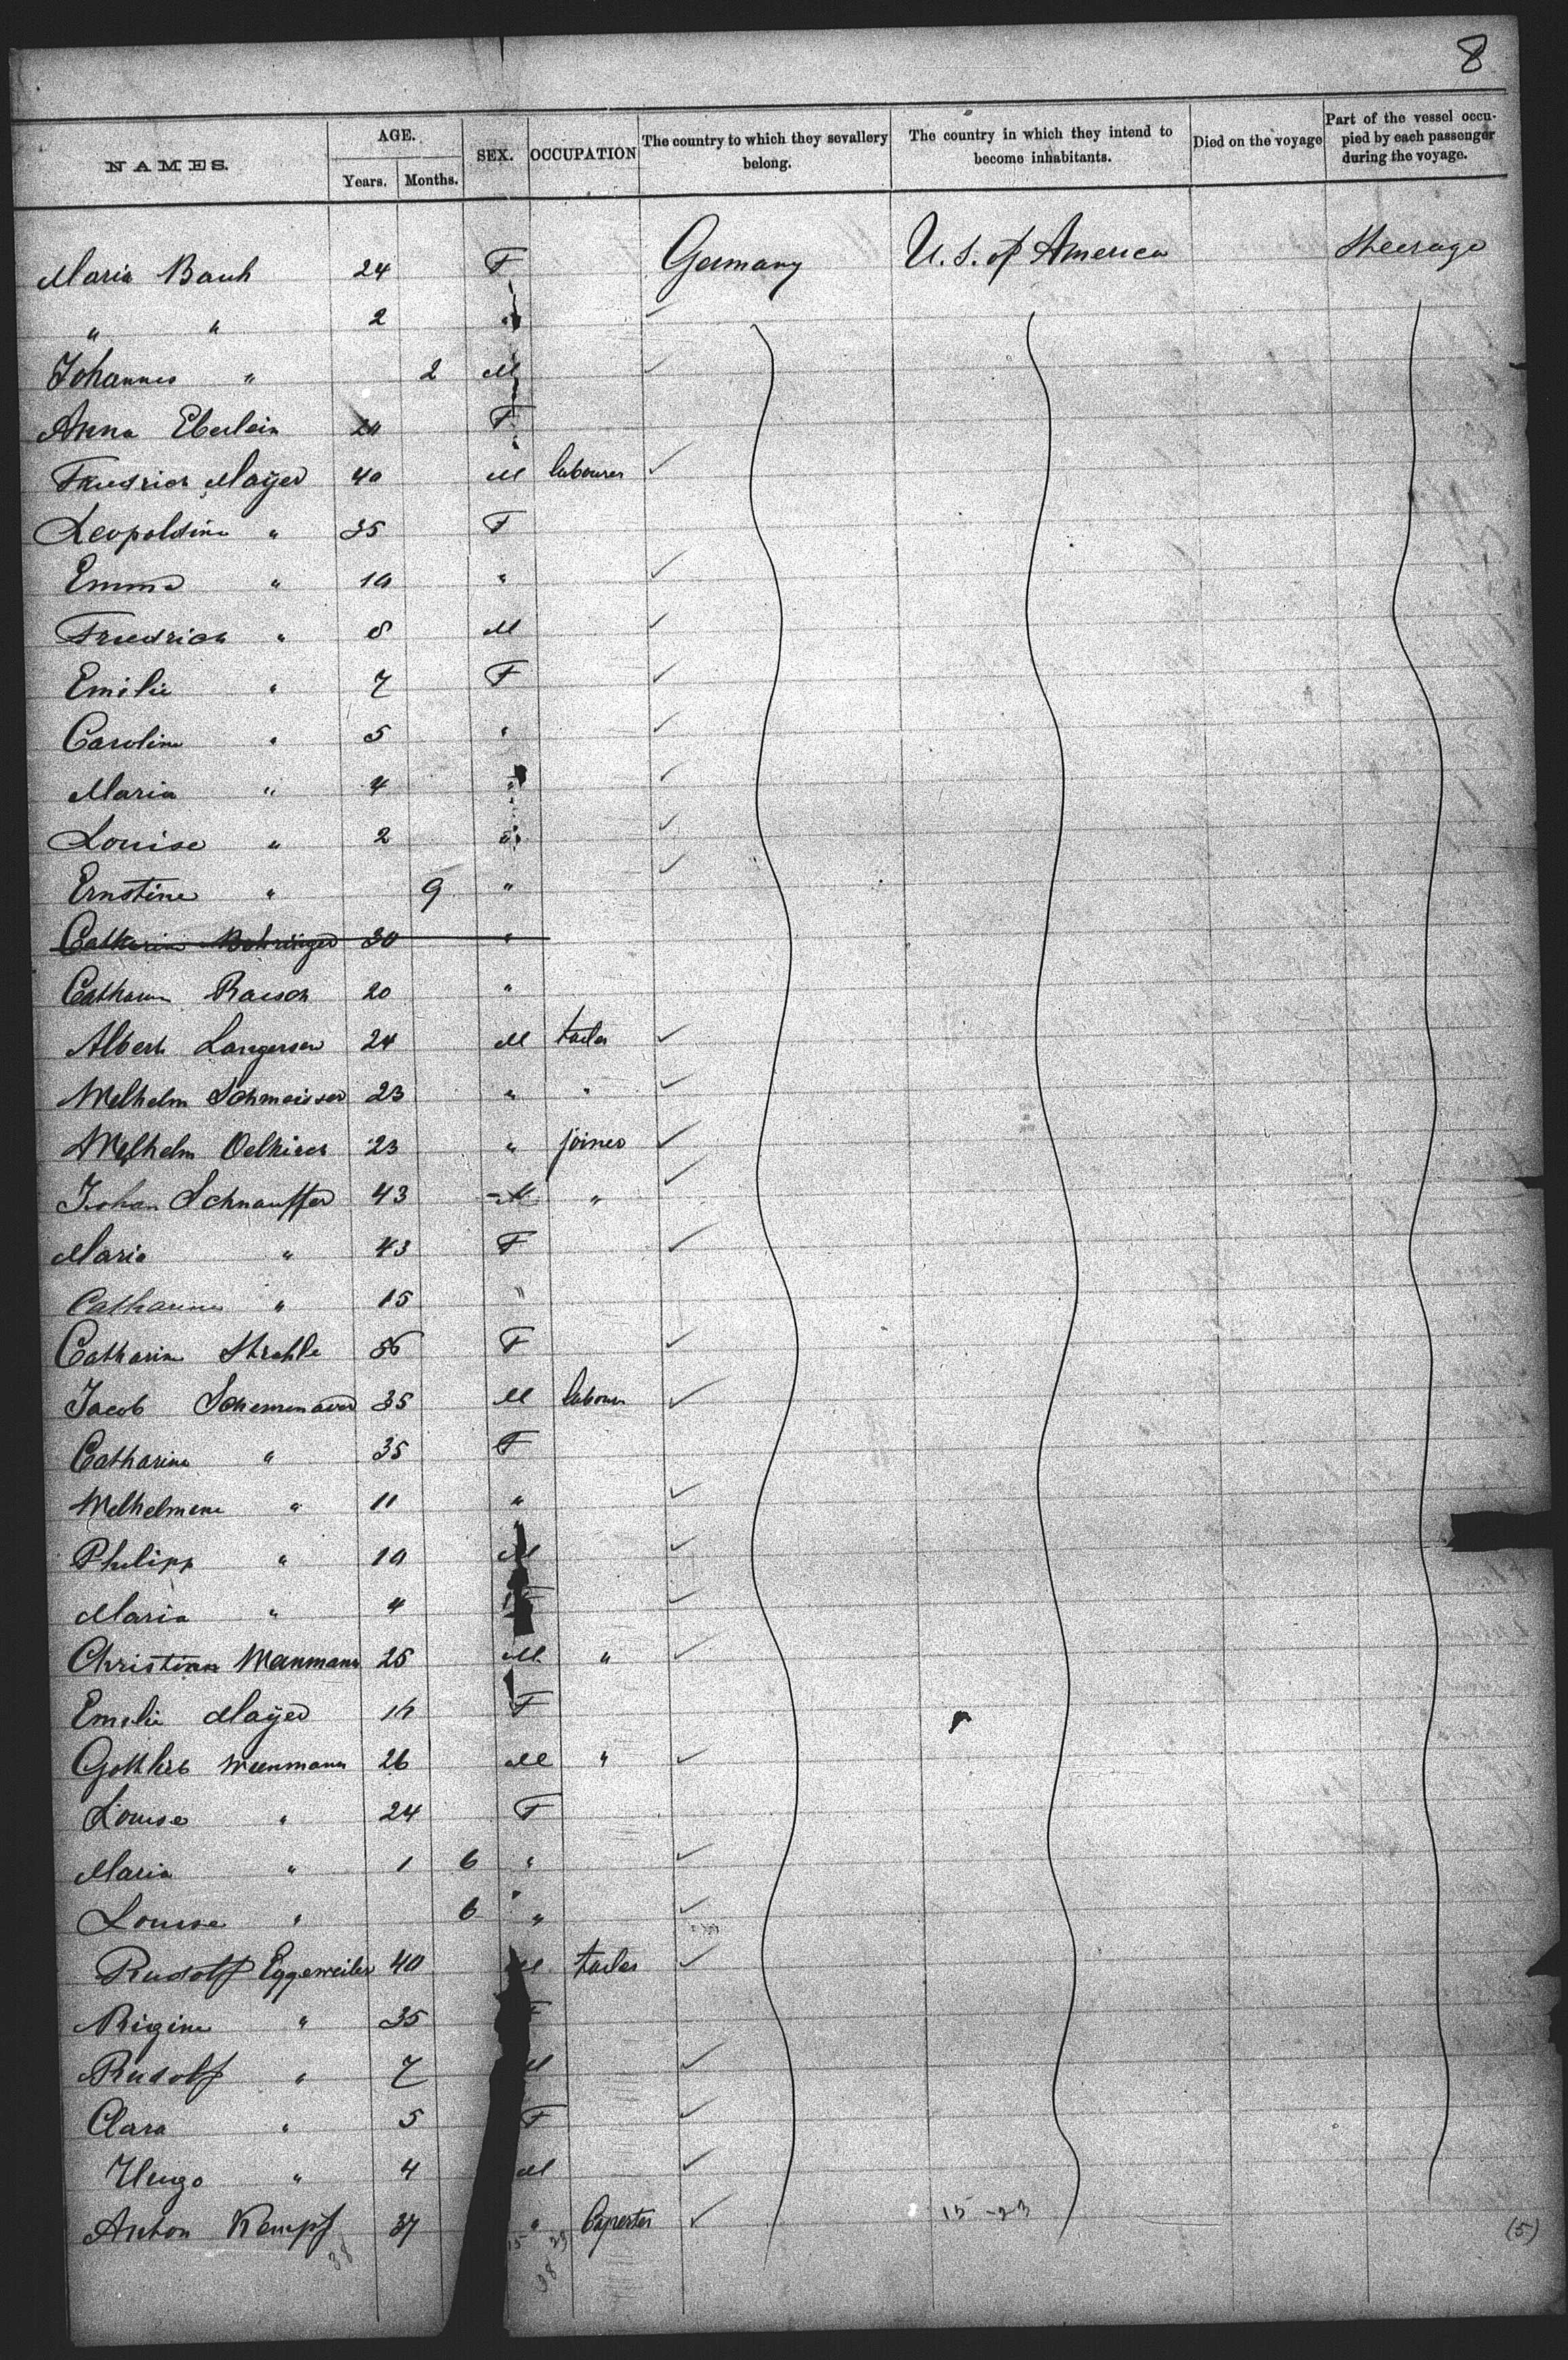 8
NAMES. AGE. Years. Months. SEX. OCCUPATION The country to which they sevallery belong. The country in which they intend to become inhabitants. Died on the voyage Part of the vessel occupied by each passenger during the voyage.
Maria Bauh 24 F Germany U. S. of America Steerage
" " 2 "
Johannes " 2 M
Anna Eberlein 24 F
Friedrich Mayer 40 M labourer
Leopoldine " 35 F
Emma " 10 "
Friedrich " 8 M
Emilie " 7 F
Caroline " 5 "
Maria " 4 "
Louise " 2 "
Ernstine " 9 "
Catharine Bohringer 30 "
Catharine Raisch 20 "
Albert 24 M tailor
Wilhelm Schmeisser 23 " "
Wilhelm 23 " joiner
Johan Schnauffer 43 M "
Maria " 43 F
Catharine " 15 "
Catharine Strahle 56 F
Jacob 35 M labourer
Catharine " 35 F
Wilhelmine " 11 "
Philipp " 10 M
Maria " 4 F
Christian Weinmann 25 M "
Emilie Mayer F
Gottlieb Weinmann 26 M "
Louise " 24 F
Maria " 1 6 "
Louise " 6 "
Rudolf Eggeweiler 40 M tailor
Rigine " 35 F
Rudolf " 7 M
Clara " 5 F
Hugo " 4 M
Anton Kempf 37 " Carpenter 15-23
38 15 23 (5)
38